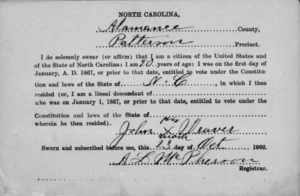 NORTH CAROLINA,
Alamance County,
Patterson Precinct.
I do solemnly swear (or affirm) that I am a citizen of the United States and
of the State of North Carolina: I am 20 years of age: I was on the first day of
January, A. D. 1867, or prior to that date, entitled to vote under the Constitu-
tion and laws of the State of N. C, in which I then
resided (or, I am a lineal descendant of
who was on January 1, 1867, or prior to that date, entitled to vote under the
Constitution and laws of the State of
wherein he then resided).
his
John X Weaver
mark
Sworn and subscribed before me, this 25 day of Oct 1902.
McPherson
Registrar.